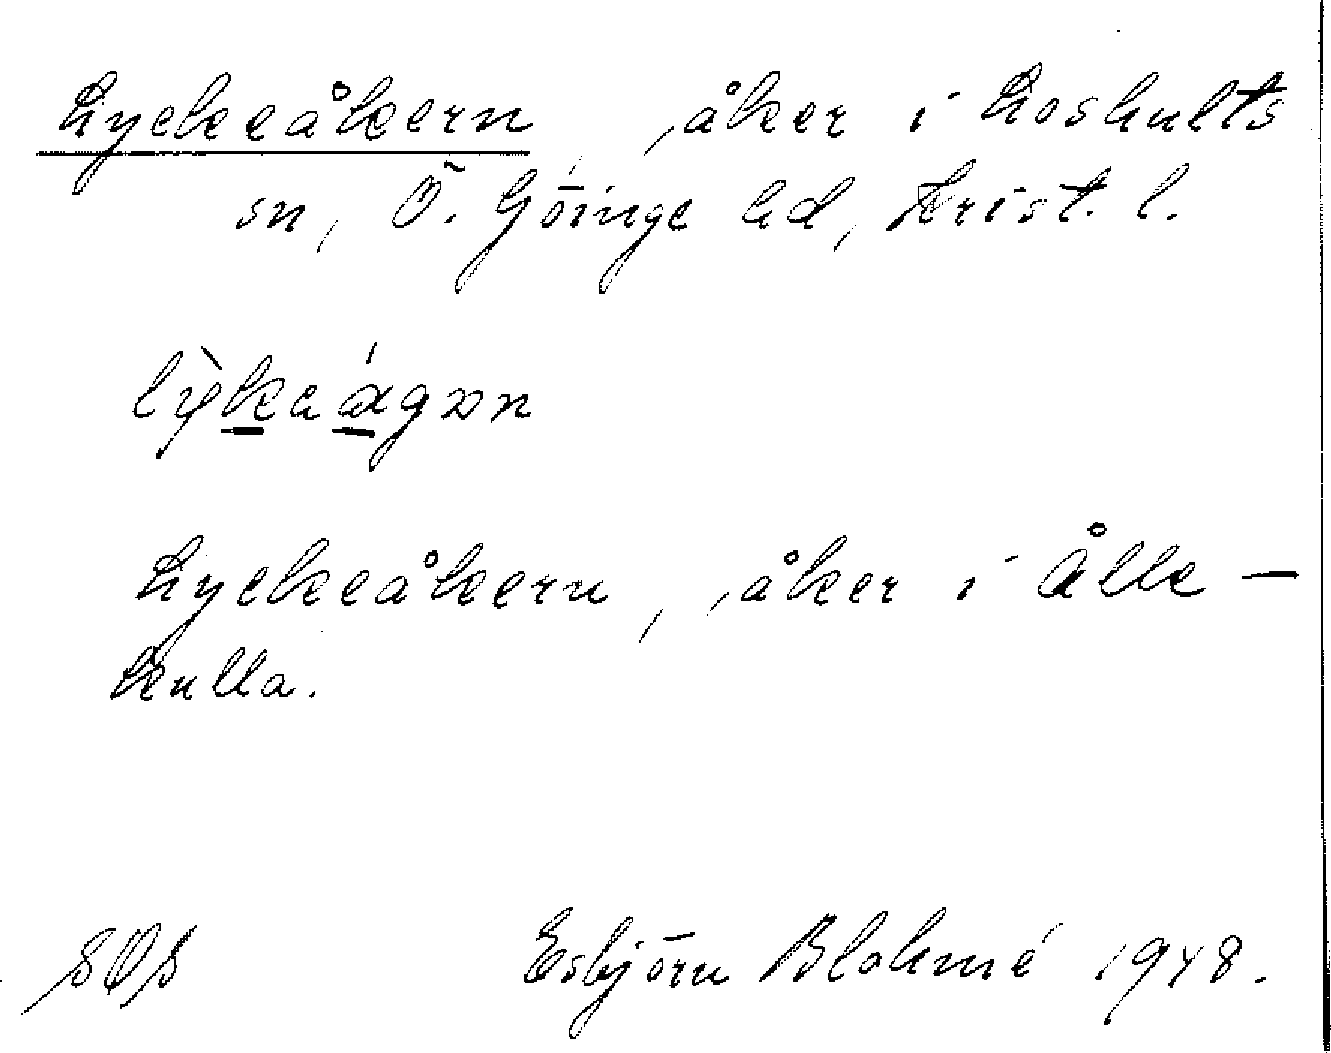 Lyckeåkern, åker i Loshults
sn, Ö. Göinge hd, Krist. l.
Lyckeåkern, åker i Ålle-
kulla.
Esbjörn Blohmé 1948.